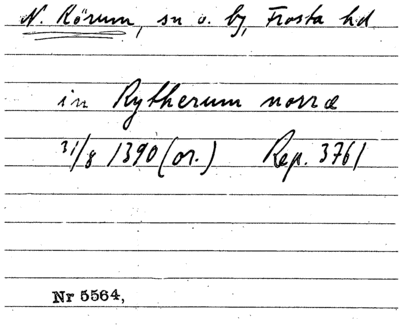 N. Rörum, sn o. by, Frosta hd
in Rytherum norræ
31/8 1390 (or.) Rep. 3761
Nr 5564,